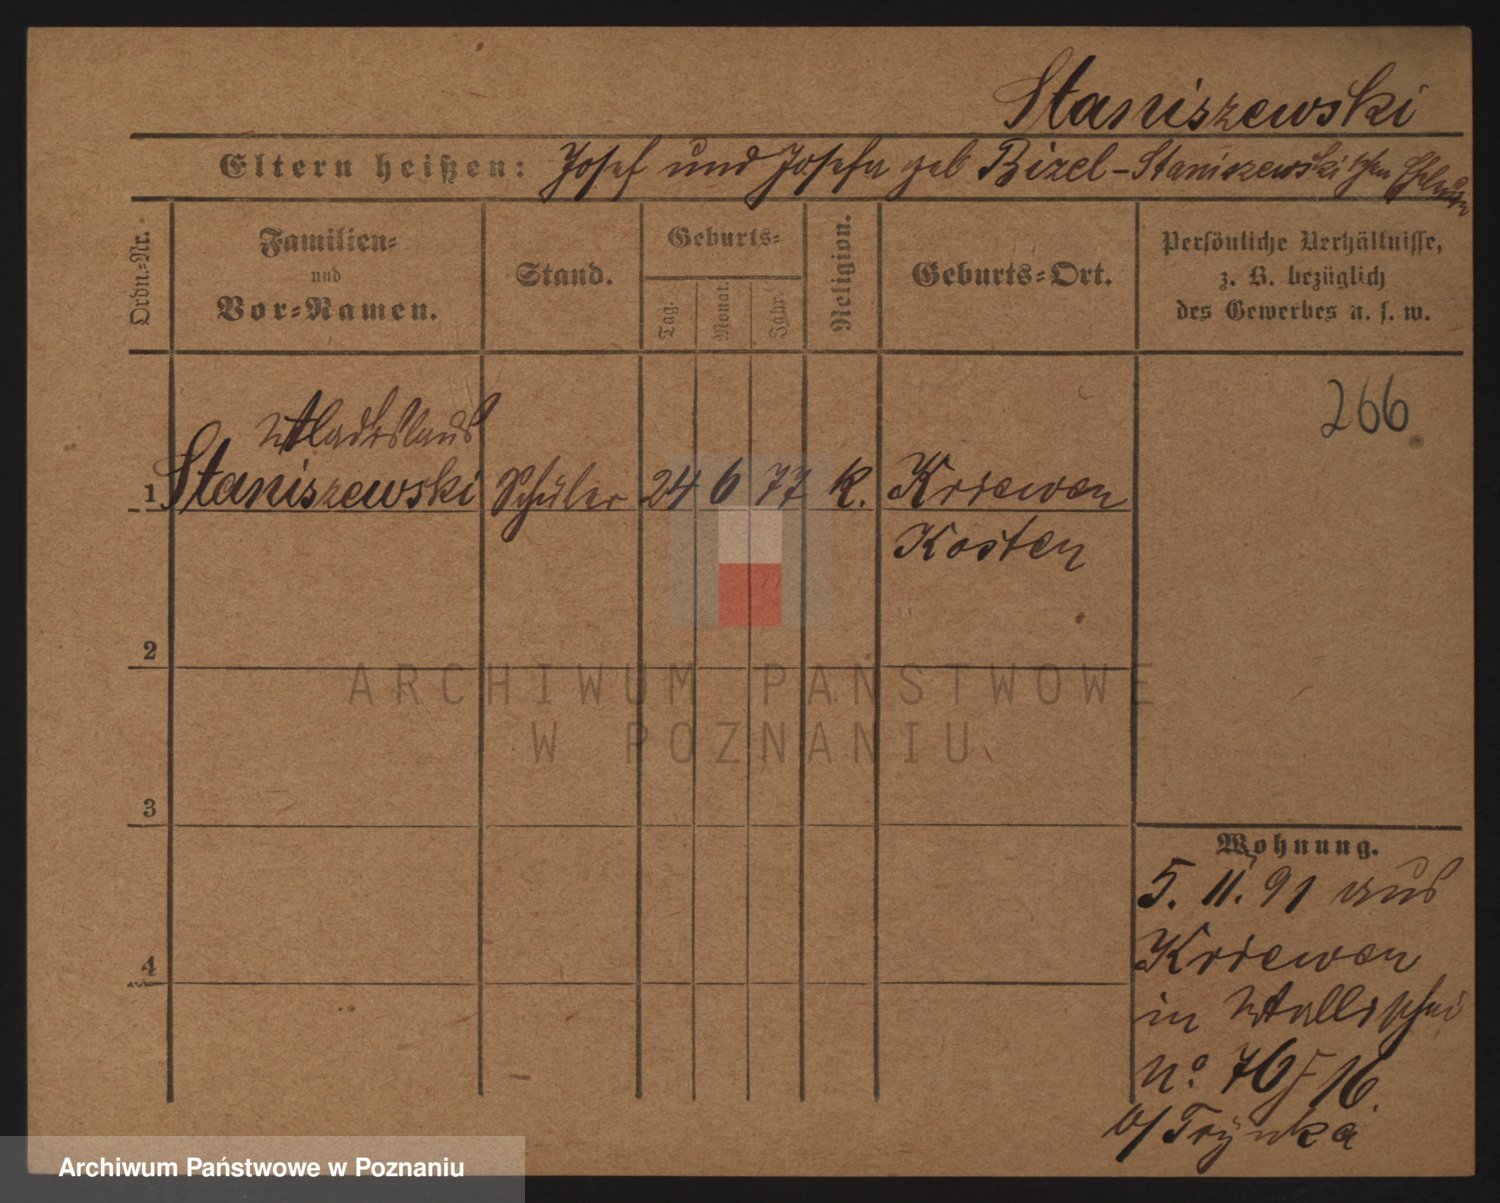 Staniszewski
Eltern heißen: Josef und Josefa geb Bizel - Staniszewski'schen Eheleute
Ordn.-Nr.
Familien-
und
Vor-Namen.
Stand.
Geburts-
Tag.
Monat.
Jahr.
Religion.
Geburts-Ort.
Persönliche Verhältnisse,
z. B. bezüglich
des Gewerbes u. s. w.
266
Wladislaus
1 Staniszewski Schüler 24 6 77 k. Kriewen
Kosten
2
ARCHIWUM PAŃSTWOWE
W POZNANIU
3
Wohnung.
5. 11. 91 aus
Kriewen
4
in Wallischei
No. 76/16
b/ Trynka
Archiwum Państwowe w Poznaniu